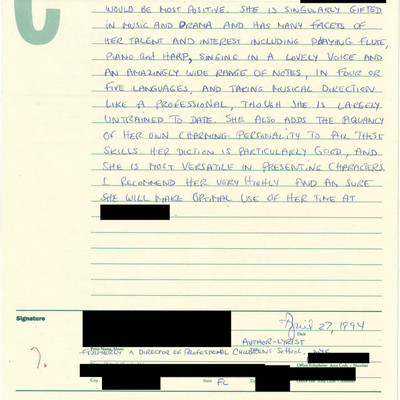 WOULD BE MOST POSITIVE. SHE IS SINGULARLY GIFTED
IN MUSIC AND DRAMA AND HAS MANY FACETS OF
HER TALENT AND INTEREST INCLUDING PLAYING FLUTE,
PIANO and HARP, SINGING IN A LOVELY VOICE AND
AN AMAZINGLY WIDE RANGE OF NOTES, IN FOUR OR
FIVE LANGUAGES, AND TAKING MUSICAL DIRECTION
LIKE A PROFESSIONAL, THOUGH SHE IS LARGELY
UNTRAINED TO DATE. SHE ALSO ADDS THE PIQUANCY
OF HER OWN CHARMING PERSONALITY TO ALL THESE
SKILLS. HER DICTION IS PARTICULARLY GOOD, AND
SHE IS MOST VERSATILE IN PRESENTING CHARACTERS.
I RECOMMEND HER VERY HIGHLY AND AM SURE
SHE WILL MAKE OPTIMAL USE OF HER TIME AT
Signature
April 27, 1994
Date
AUTHOR-LYRIST
FORMERLY A DIRECTOR OF PROFESSIONAL CHILDREN'S SCHOOL, NYC
Office Telephone: Area Code + Number
City State FL